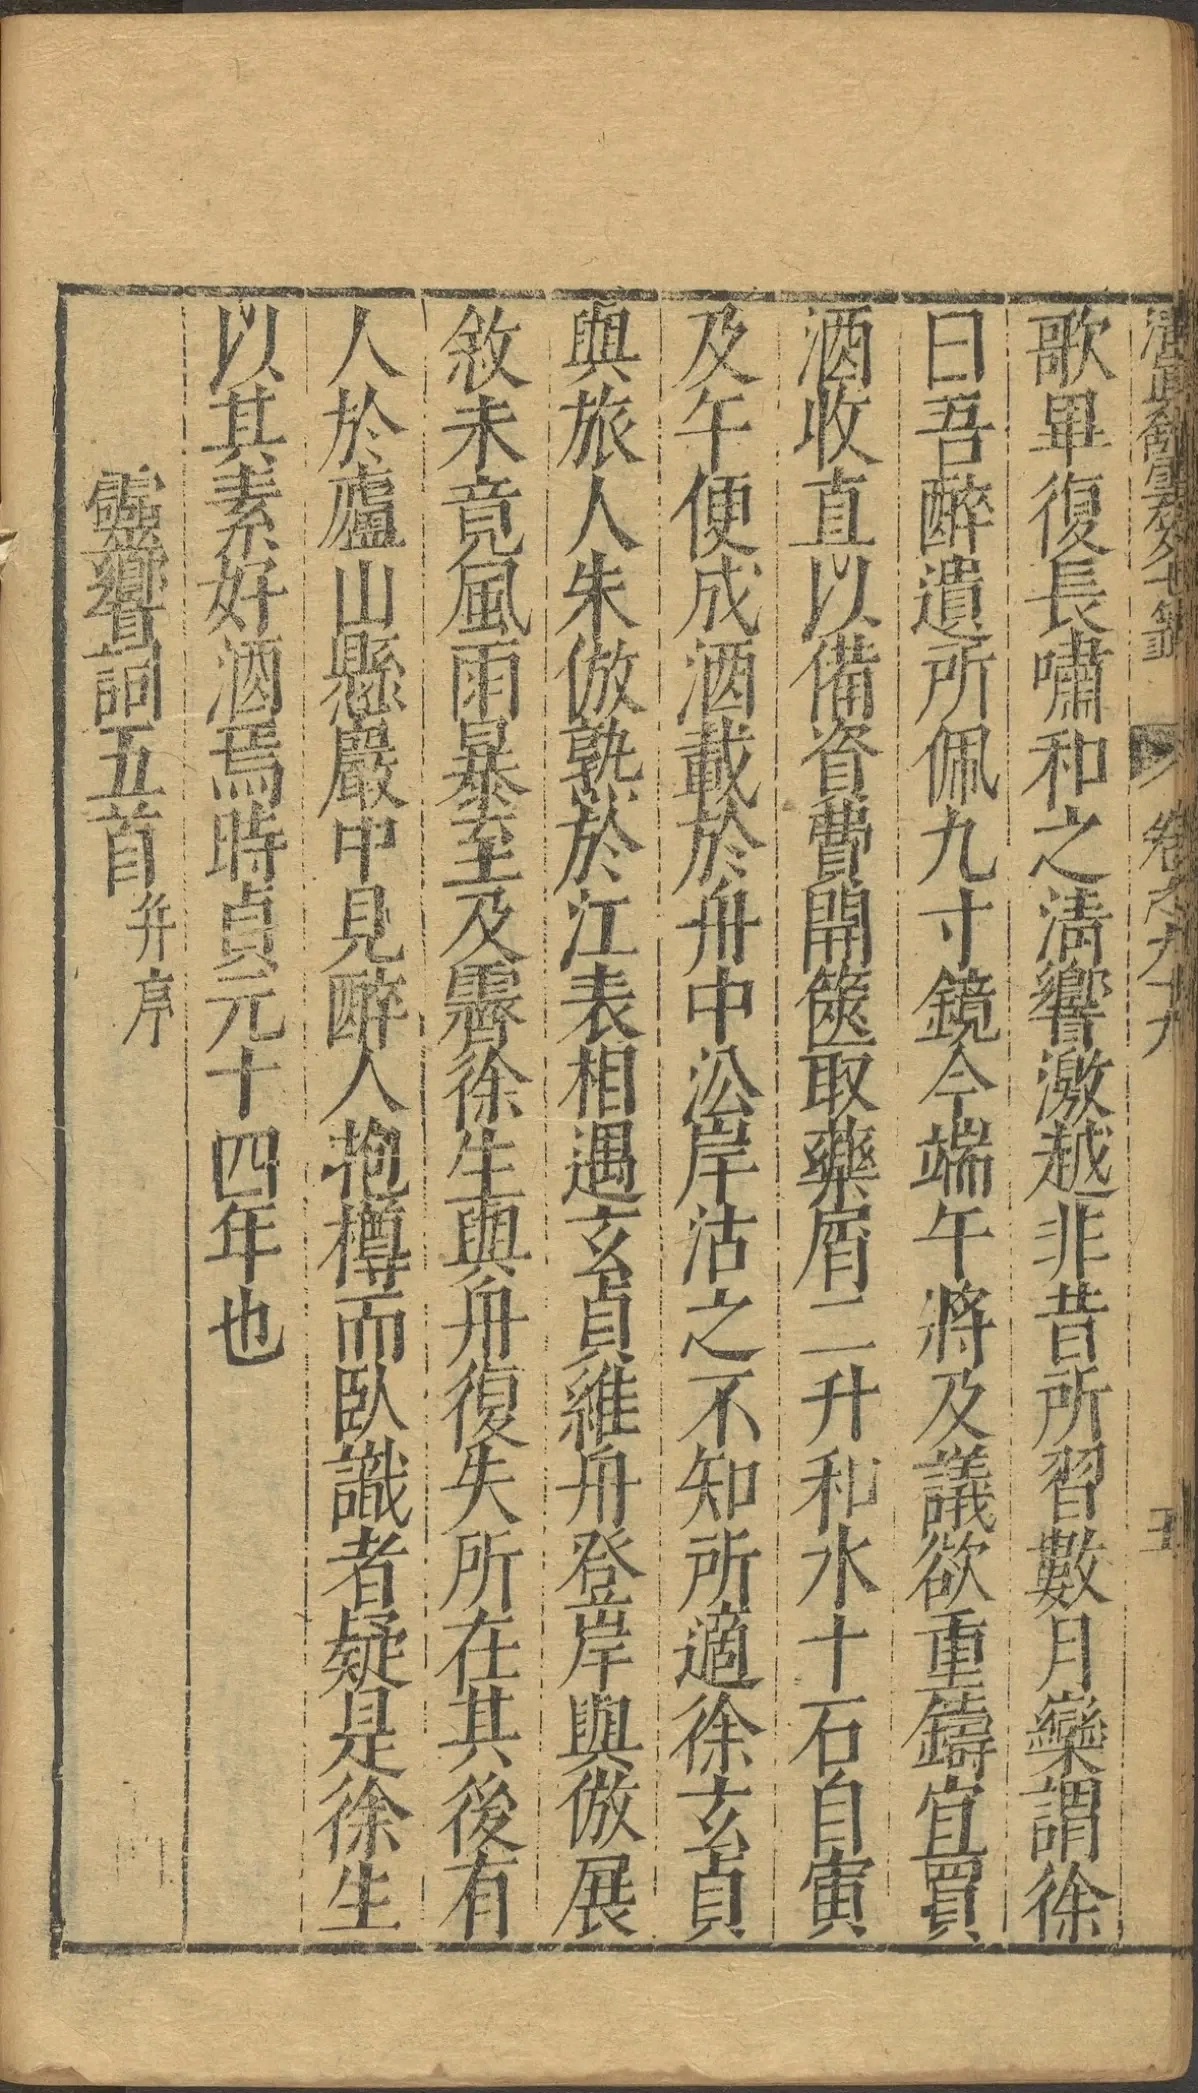 清真館雲笈七籤 卷之九十九 五
歌畢復長嘯和之淸響激越非昔所習數月欒謂徐
曰吾醉遺所佩九寸鏡今端午將及議欲重鑄宜買
酒收直以備資費開篋取藥屑二升和水十石自寅
及午便成酒載於舟中㳂岸沽之不知所適徐玄貞
與旅人朱倣熟於江表相遇玄貞維舟登岸與倣展
敘未竟風雨暴至及霽徐生與舟復失所在其後有
人於廬山懸巖中見醉人抱樽而臥識者疑是徐生
以其素好酒焉時貞元十四年也
靈響詞五首并序